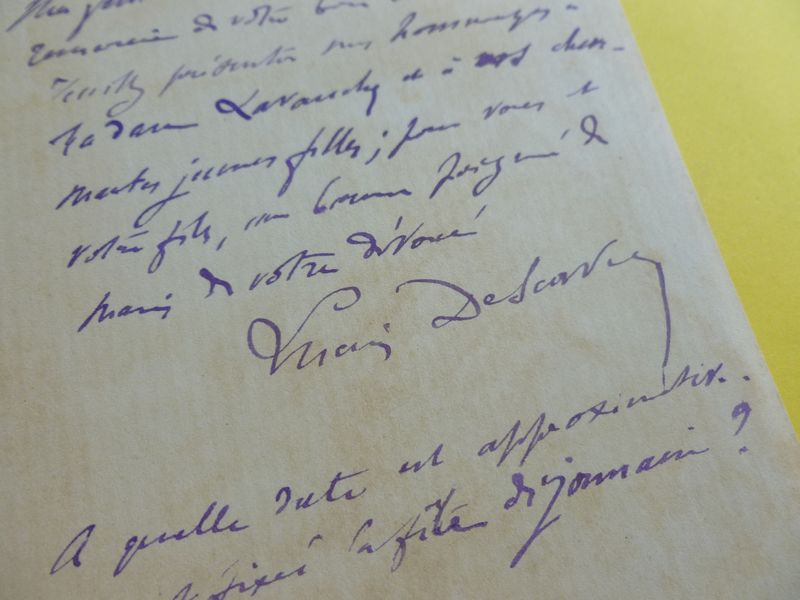 de votre
présenter mes hommages à
Madame Lavanchy et à vos char-
mantes jeunes filles ; pour vous et
votre fils, une bonne poignée de
main de votre dévoué
Lucien Descaves
A quelle date est approximativ.
fixée la fête dijonnaise ?